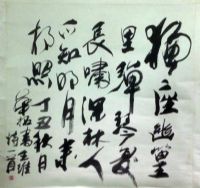 獨坐幽篁
里彈琴復
長嘯深林人
不知明月來
相照 丁丑秋月
書王維
詩一首